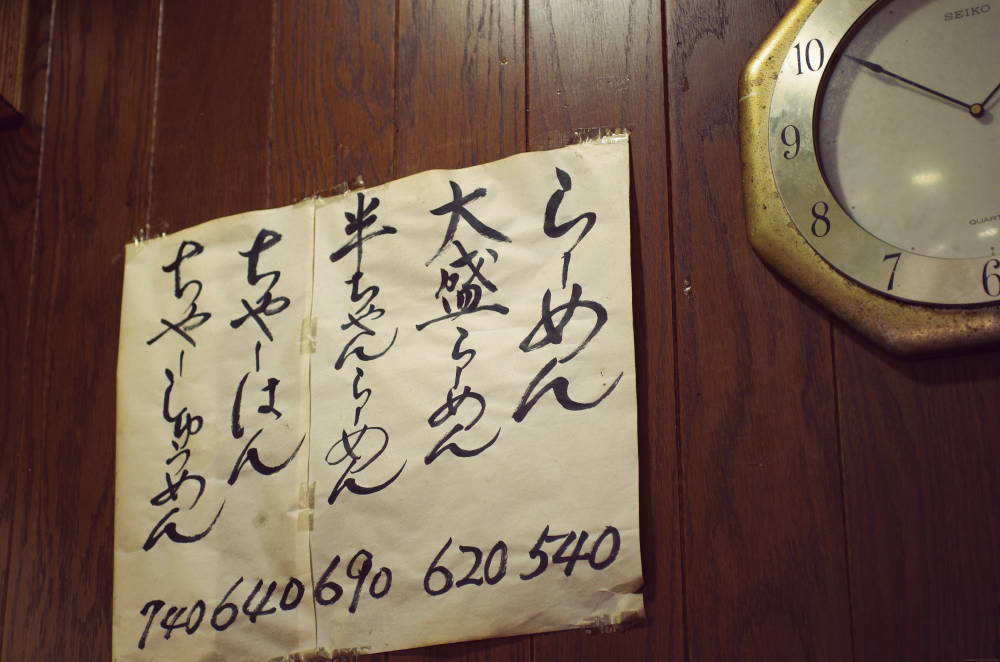 らーめん
540
大盛らーめん
620
半ちゃんらーめん
690
ちゃーはん
640
ちゃーしゅうめん
740
SEIKO
QUARTZ
10
9
8
7
6